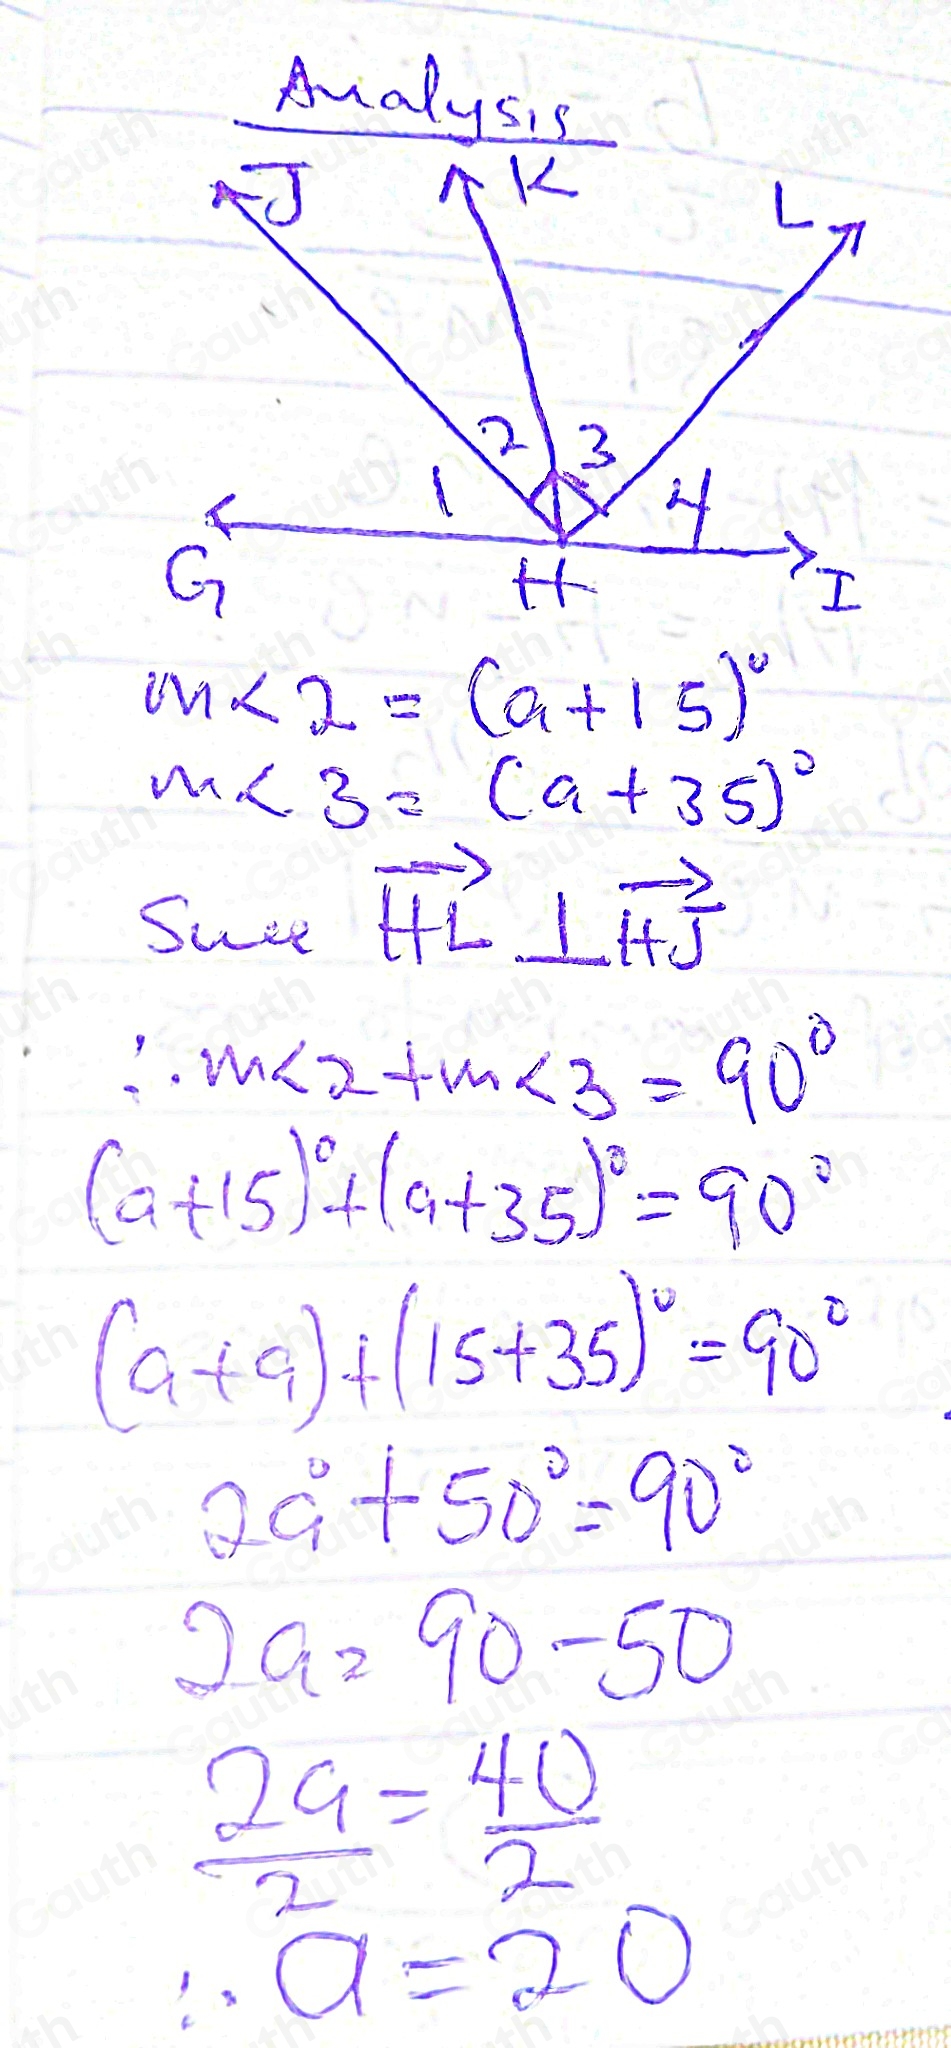 Analysis
J K L
2 3
1 4
G H I
m<2 = (a+15)°
m<3 = (a+35)°
Since HL ⊥ HJ
∴ m<2+m<3 = 90°
(a+15)°+(a+35)° = 90°
(a+a)+(15+35)° = 90°
2a°+50° = 90°
2a = 90-50
2a/2 = 40/2
∴ a = 20
Gauth